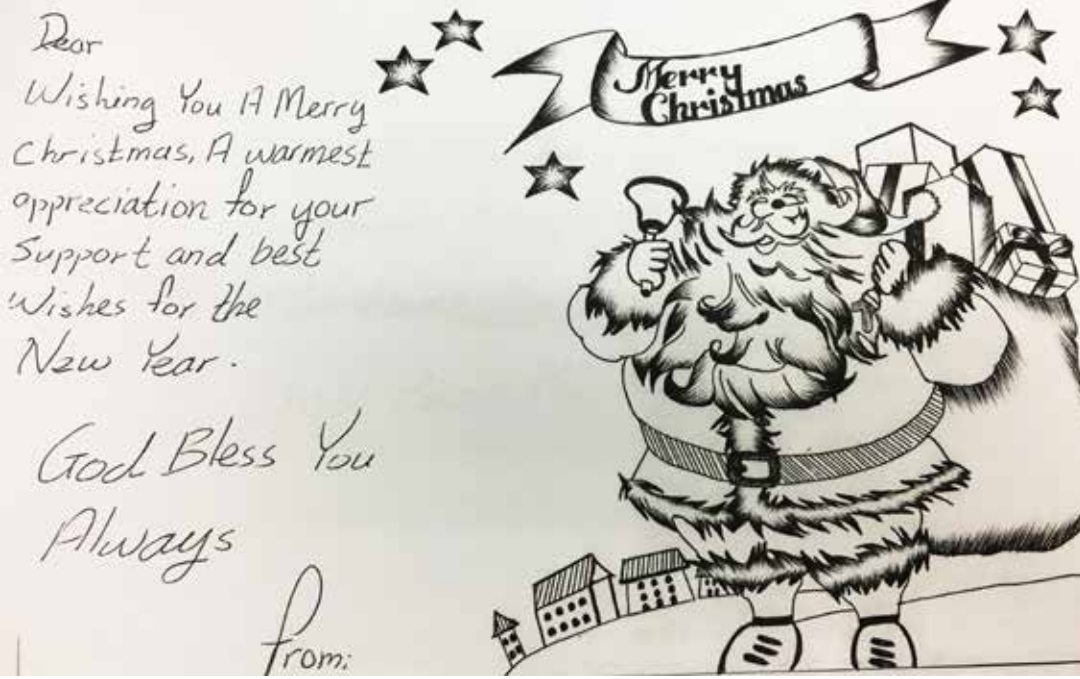 Dear
Wishing You A Merry
Christmas, A warmest
appreciation for your
Support and best
Wishes for the
New Year.
God Bless You
Always
From:
Merry
Christmas